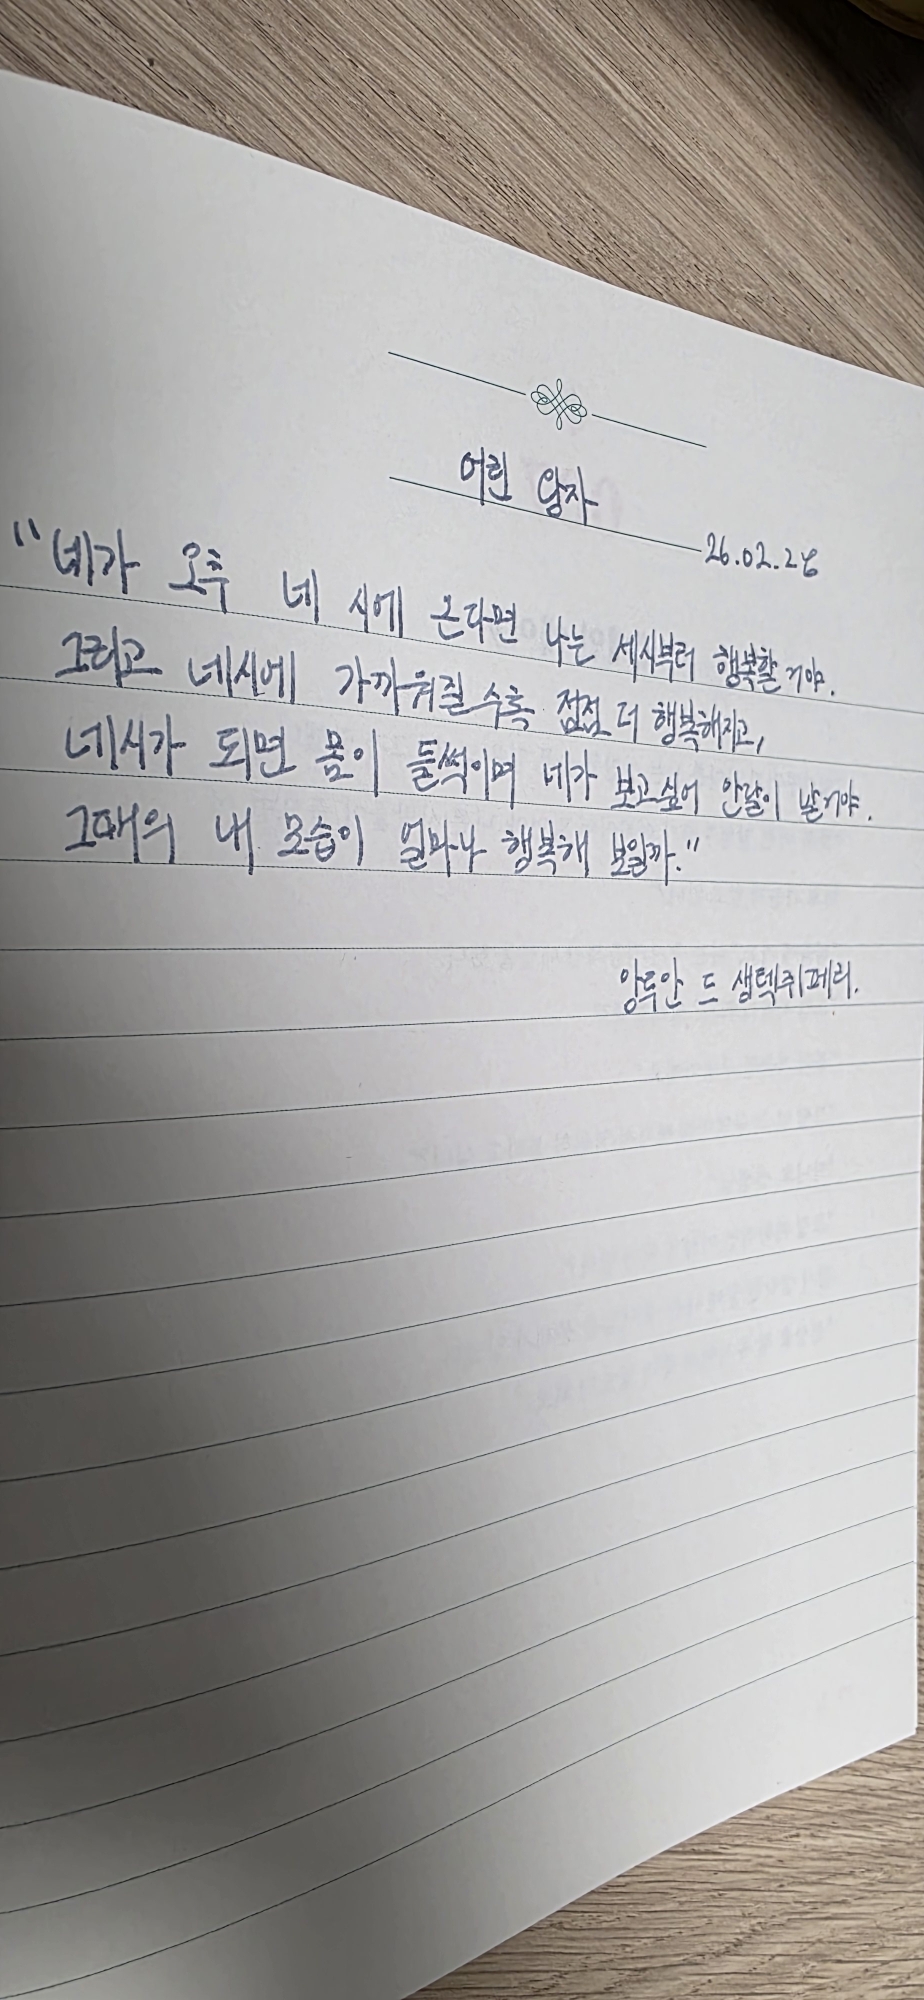 어린 왕자
26.02.28
"네가 오후 네 시에 온다면 나는 세시부터 행복할 거야.
그리고 네시에 가까워질 수록 점점 더 행복해지고,
네시가 되면 몸이 들썩이며 네가 보고싶어 안달이 날거야.
그때의 내 모습이 얼마나 행복해 보일까."
앙투안 드 생텍쥐페리.